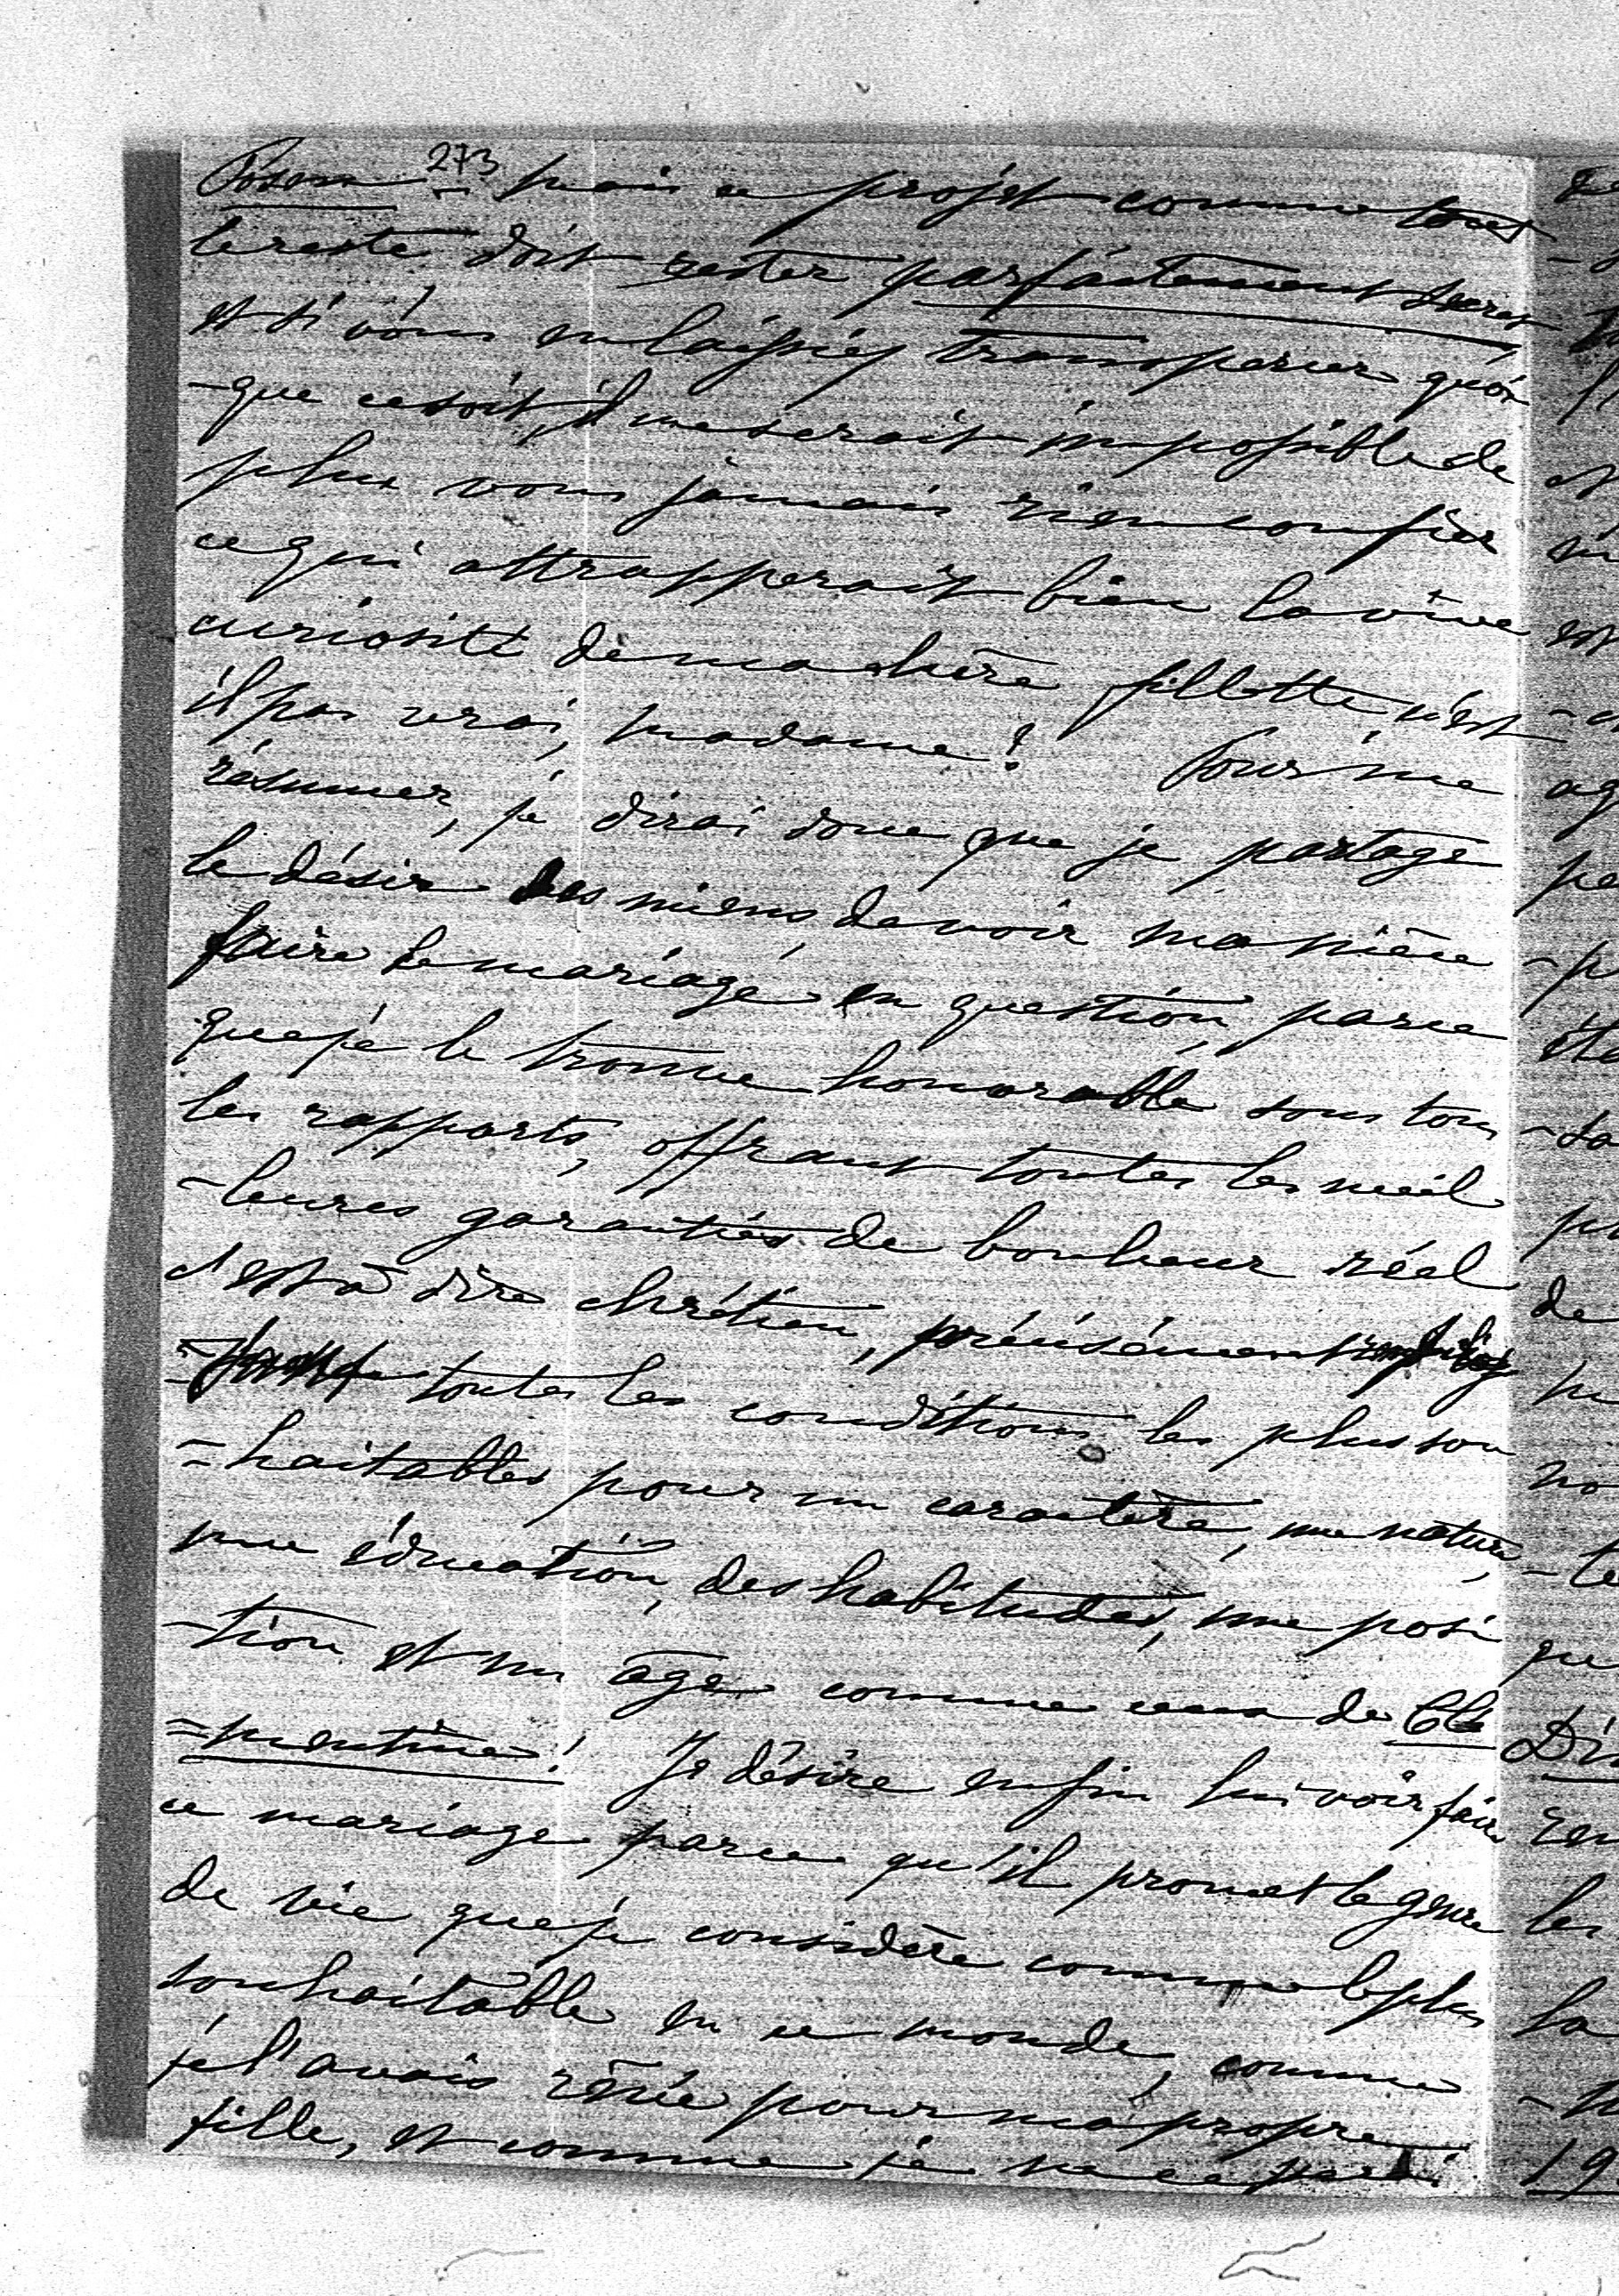 273
Posen – mais ce projet comme tout
le reste doit rester parfaitement secret
et si vous en laissiez transpercer quoi
-que ce soit, il me serait impossible de
plus vous jamais rien confier
ce qui attrapperait bien la vive
curiosité de ma chère fillette, n'est
il pas vrai, madame! Pour me
résumer, je dirai donc que je partage
le désir des miens de voir ma nièce
faire le mariage en question, parce
que je le trouve honorable sous tous
les rapports, offrant toutes les meil
-leures garanties de bonheur réel
c'est à dire chrétien, précisément
toutes les conditions les plus sou
=haitables pour un caractère, une nature,
une éducation, des habitudes, une posi
-tion et un âge comme ceux de Clé
=mentine! Je désire enfin lui voir faire
ce mariage parce qu'il promet le genre
de vie que je considère comme le plus
souhaitable en ce monde, comme
je l'avais rêvée pour ma propre
fille, et comme je ne